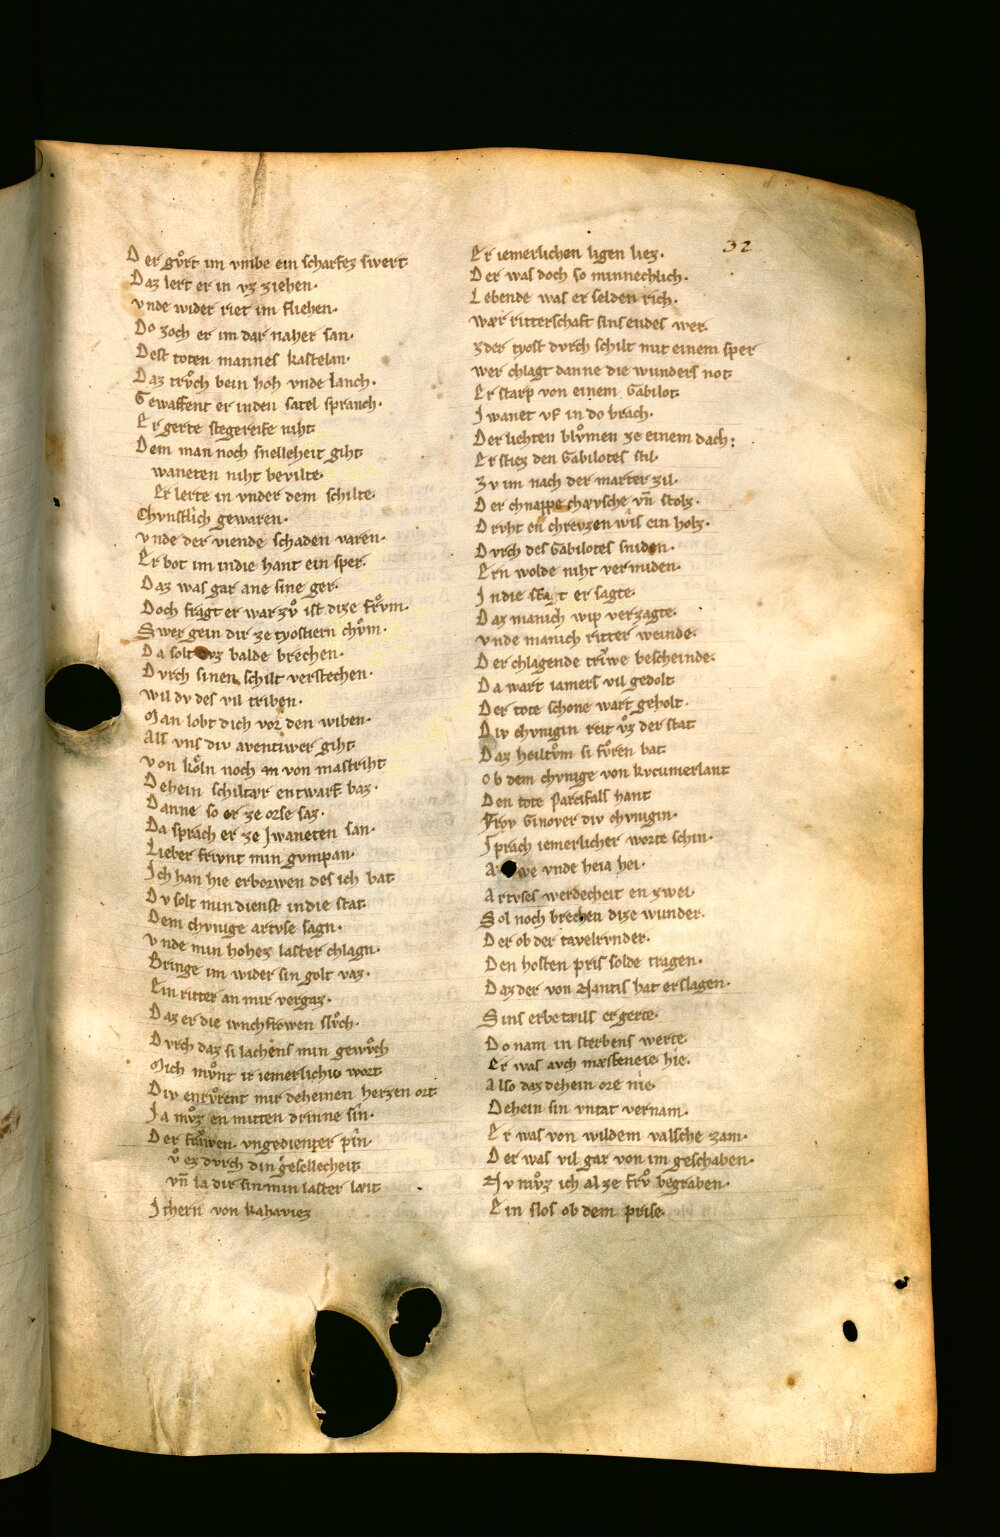 32
Der gůrt im vmbe ein scharfez swert
Daz lert er in vz ziehen·
vnde wider riet im fliehen·
Do zoch er im dar naher san·
Dest toten mannes kastelan·
Daz trůch bein hoh vnde lanch·
Gewaffent er inden satel spranch·
Er gerte stegereife niht
Dem man noch snelleheit giht
waneten niht bevilte·
Er lerte in vnder dem schilte·
Chvnstlich gewaren·
vnde der viende schaden varen·
Er bot im indie hant ein sper·
Daz was gar ane sine ger·
Doch fragt er war zů ist dize frům·
Swer gein dir ze tyostiern chům·
Da solt dvz balde brechen·
Dvrch sinen schilt verstechen·
wil dv des vil triben·
Man lobt dich vor den wiben·
Als vns div aventiwer giht
von köln noch von mastriht
Dehein schiltær entwarf baz·
Danne so er ze orse saz·
Da sprach er ze Jwaneten san·
Lieber friwnt min gvmpan·
Ich han hie erborwen des ich bat
Dv solt min dienst indie stat
Dem chvnige artvse sagn·
vnde min hohez laster chlagn·
Bringe im wider sin golt vaz·
Ein ritter an mir vergaz·
Daz er die ivnchfrowen slůch·
Dvrch daz si lachens min gewůch
Mich mvnt ir iemerlichiv wort
Div enrůrent mir deheinen herzen ort
Ja můz en mitten drinne sin·
Der frawen vngedienter pin·
ů ez dvrch din gesellecheit
vn̄ la dir sin min laster læit
Jthern von kahaviez
Er iemerlichen ligen liez·
Der was doch so minnechlich·
Lebende was er selden rich·
wær ritterschaft sins endes wer·
zder tyost dvrch schilt mit einem sper
wer chlagt danne die wunders not
Er starp von einem Gabilot·
Jwanet vf in do brach·
Der liehten blůmen ze einem dach:
Er stiez den Gabilotes stil·
zv im nach der marter zil·
Der chnappe chævsche vn̄ stolz·
Drvht en chrevzen wis ein holz·
Dvrch des Gabilotes sniden·
Ern wolde niht vermiden·
Jndie stat er sagte·
Daz manich wip verzagte·
vnde manich ritter weinde·
Der chlagende triwe bescheinde·
Da wart iamers vil gedolt
Der tote schone wart geholt·
Div chvnigin reit ůz der stat
Daz heiltům si fůren bat
ob dem chvnige von kvcumerlant
Den tote Parcifals hant
Frov Ginover div chvnigin·
Jprach iemerlicher worte schin·
A we vnde heia hei·
Artvses werdecheit en zwei
Sol noch brechen dize wunder·
Der ob der tavelrvnder·
Den hosten pris solde tragen·
Daz der von Nantis hat erslagen·
Sins erbeteils er gerte·
Do nam in sterbens werte
Er was avch massenie hie·
Also daz dehein ore nie·
Dehein sin vntat vernam·
Er was von wildem valsche zam·
Der was vil gar von im geschaben·
Nv můz ich al ze frů begraben·
Ein slos ob dem prise·